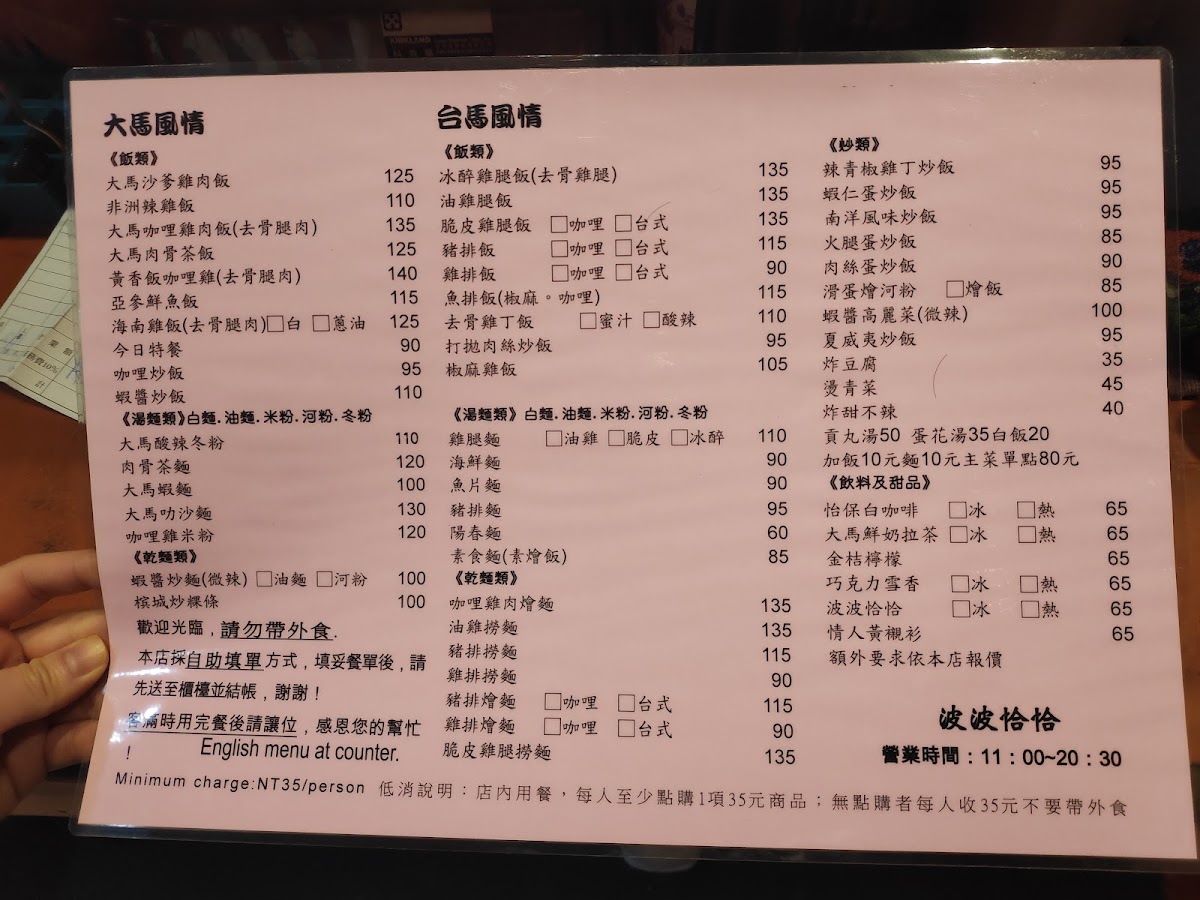 KIRKLAND
大馬風情
《飯類》
大馬沙爹雞肉飯 125
非洲辣雞飯 110
大馬咖哩雞肉飯(去骨腿肉) 135
大馬肉骨茶飯 125
黃香飯咖哩雞(去骨腿肉) 140
亞參鮮魚飯 115
海南雞飯(去骨腿肉)□白 □蔥油 125
今日特餐 90
咖哩炒飯 95
蝦醬炒飯 110
《湯麵類》白麵.油麵.米粉.河粉.冬粉
大馬酸辣冬粉 110
肉骨茶麵 120
大馬蝦麵 100
大馬叻沙麵 130
咖哩雞米粉 120
《乾麵類》
蝦醬炒麵(微辣) □油麵 □河粉 100
檳城炒粿條 100
歡迎光臨，請勿帶外食.
本店採自助填單方式，填妥餐單後，請
先送至櫃檯並結帳，謝謝！
客滿時用完餐後請讓位，感恩您的幫忙
！ English menu at counter.
台馬風情
《飯類》
冰醉雞腿飯(去骨雞腿) 135
油雞腿飯 135
脆皮雞腿飯 □咖哩 □台式 135
豬排飯 □咖哩 □台式 115
雞排飯 □咖哩 □台式 90
魚排飯(椒麻。咖哩) 115
去骨雞丁飯 □蜜汁 □酸辣 110
打拋肉絲炒飯 95
椒麻雞飯 105
《湯麵類》白麵.油麵.米粉.河粉.冬粉
雞腿麵 □油雞 □脆皮 □冰醉 110
海鮮麵 90
魚片麵 90
豬排麵 95
陽春麵 60
素食麵(素燴飯) 85
《乾麵類》
咖哩雞肉燴麵 135
油雞撈麵 135
豬排撈麵 115
雞排撈麵 90
豬排燴麵 □咖哩 □台式 115
雞排燴麵 □咖哩 □台式 90
脆皮雞腿撈麵 135
《炒類》
辣青椒雞丁炒飯 95
蝦仁蛋炒飯 95
南洋風味炒飯 95
火腿蛋炒飯 85
肉絲蛋炒飯 90
滑蛋燴河粉 □燴飯 85
蝦醬高麗菜(微辣) 100
夏威夷炒飯 95
炸豆腐 35
燙青菜 45
炸甜不辣 40
貢丸湯50 蛋花湯35白飯20
加飯10元麵10元主菜單點80元
《飲料及甜品》
怡保白咖啡 □冰 □熱 65
大馬鮮奶拉茶 □冰 □熱 65
金桔檸檬 65
巧克力雪香 □冰 □熱 65
波波恰恰 □冰 □熱 65
情人黃襯衫 65
額外要求依本店報價
波波恰恰
營業時間：11：00~20：30
Minimum charge:NT35/person 低消說明：店內用餐，每人至少點購1項35元商品；無點購者每人收35元不要帶外食